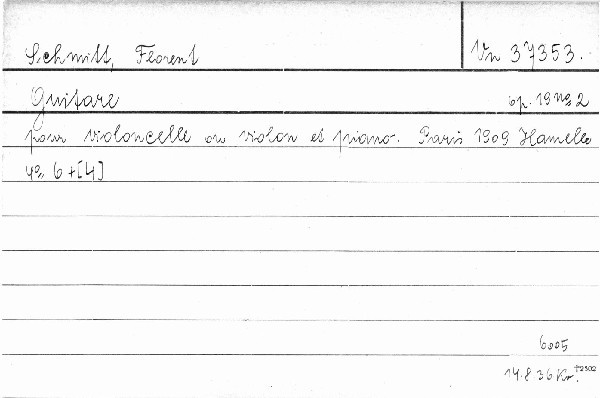 Schmitt, Florent Vn 37353.
Guitare op. 19 no 2
pour violoncelle ou violon et piano. Paris 1909 Hamelle
4o 6+[4]
6005
14.8 36 Kr. †2302